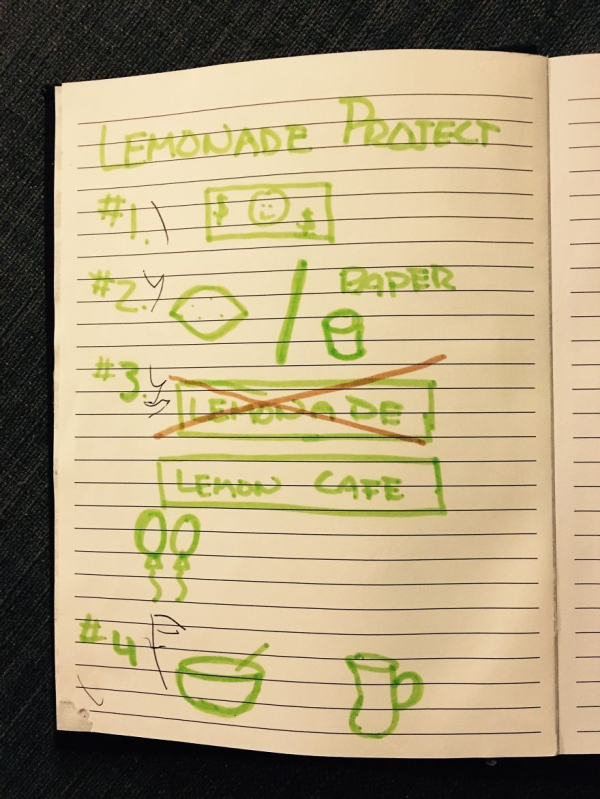 LEMONADE PROJECT
#1.
$ $
#2.
BAPER
#3.
LEMONADE
LEMON CAFE
#4